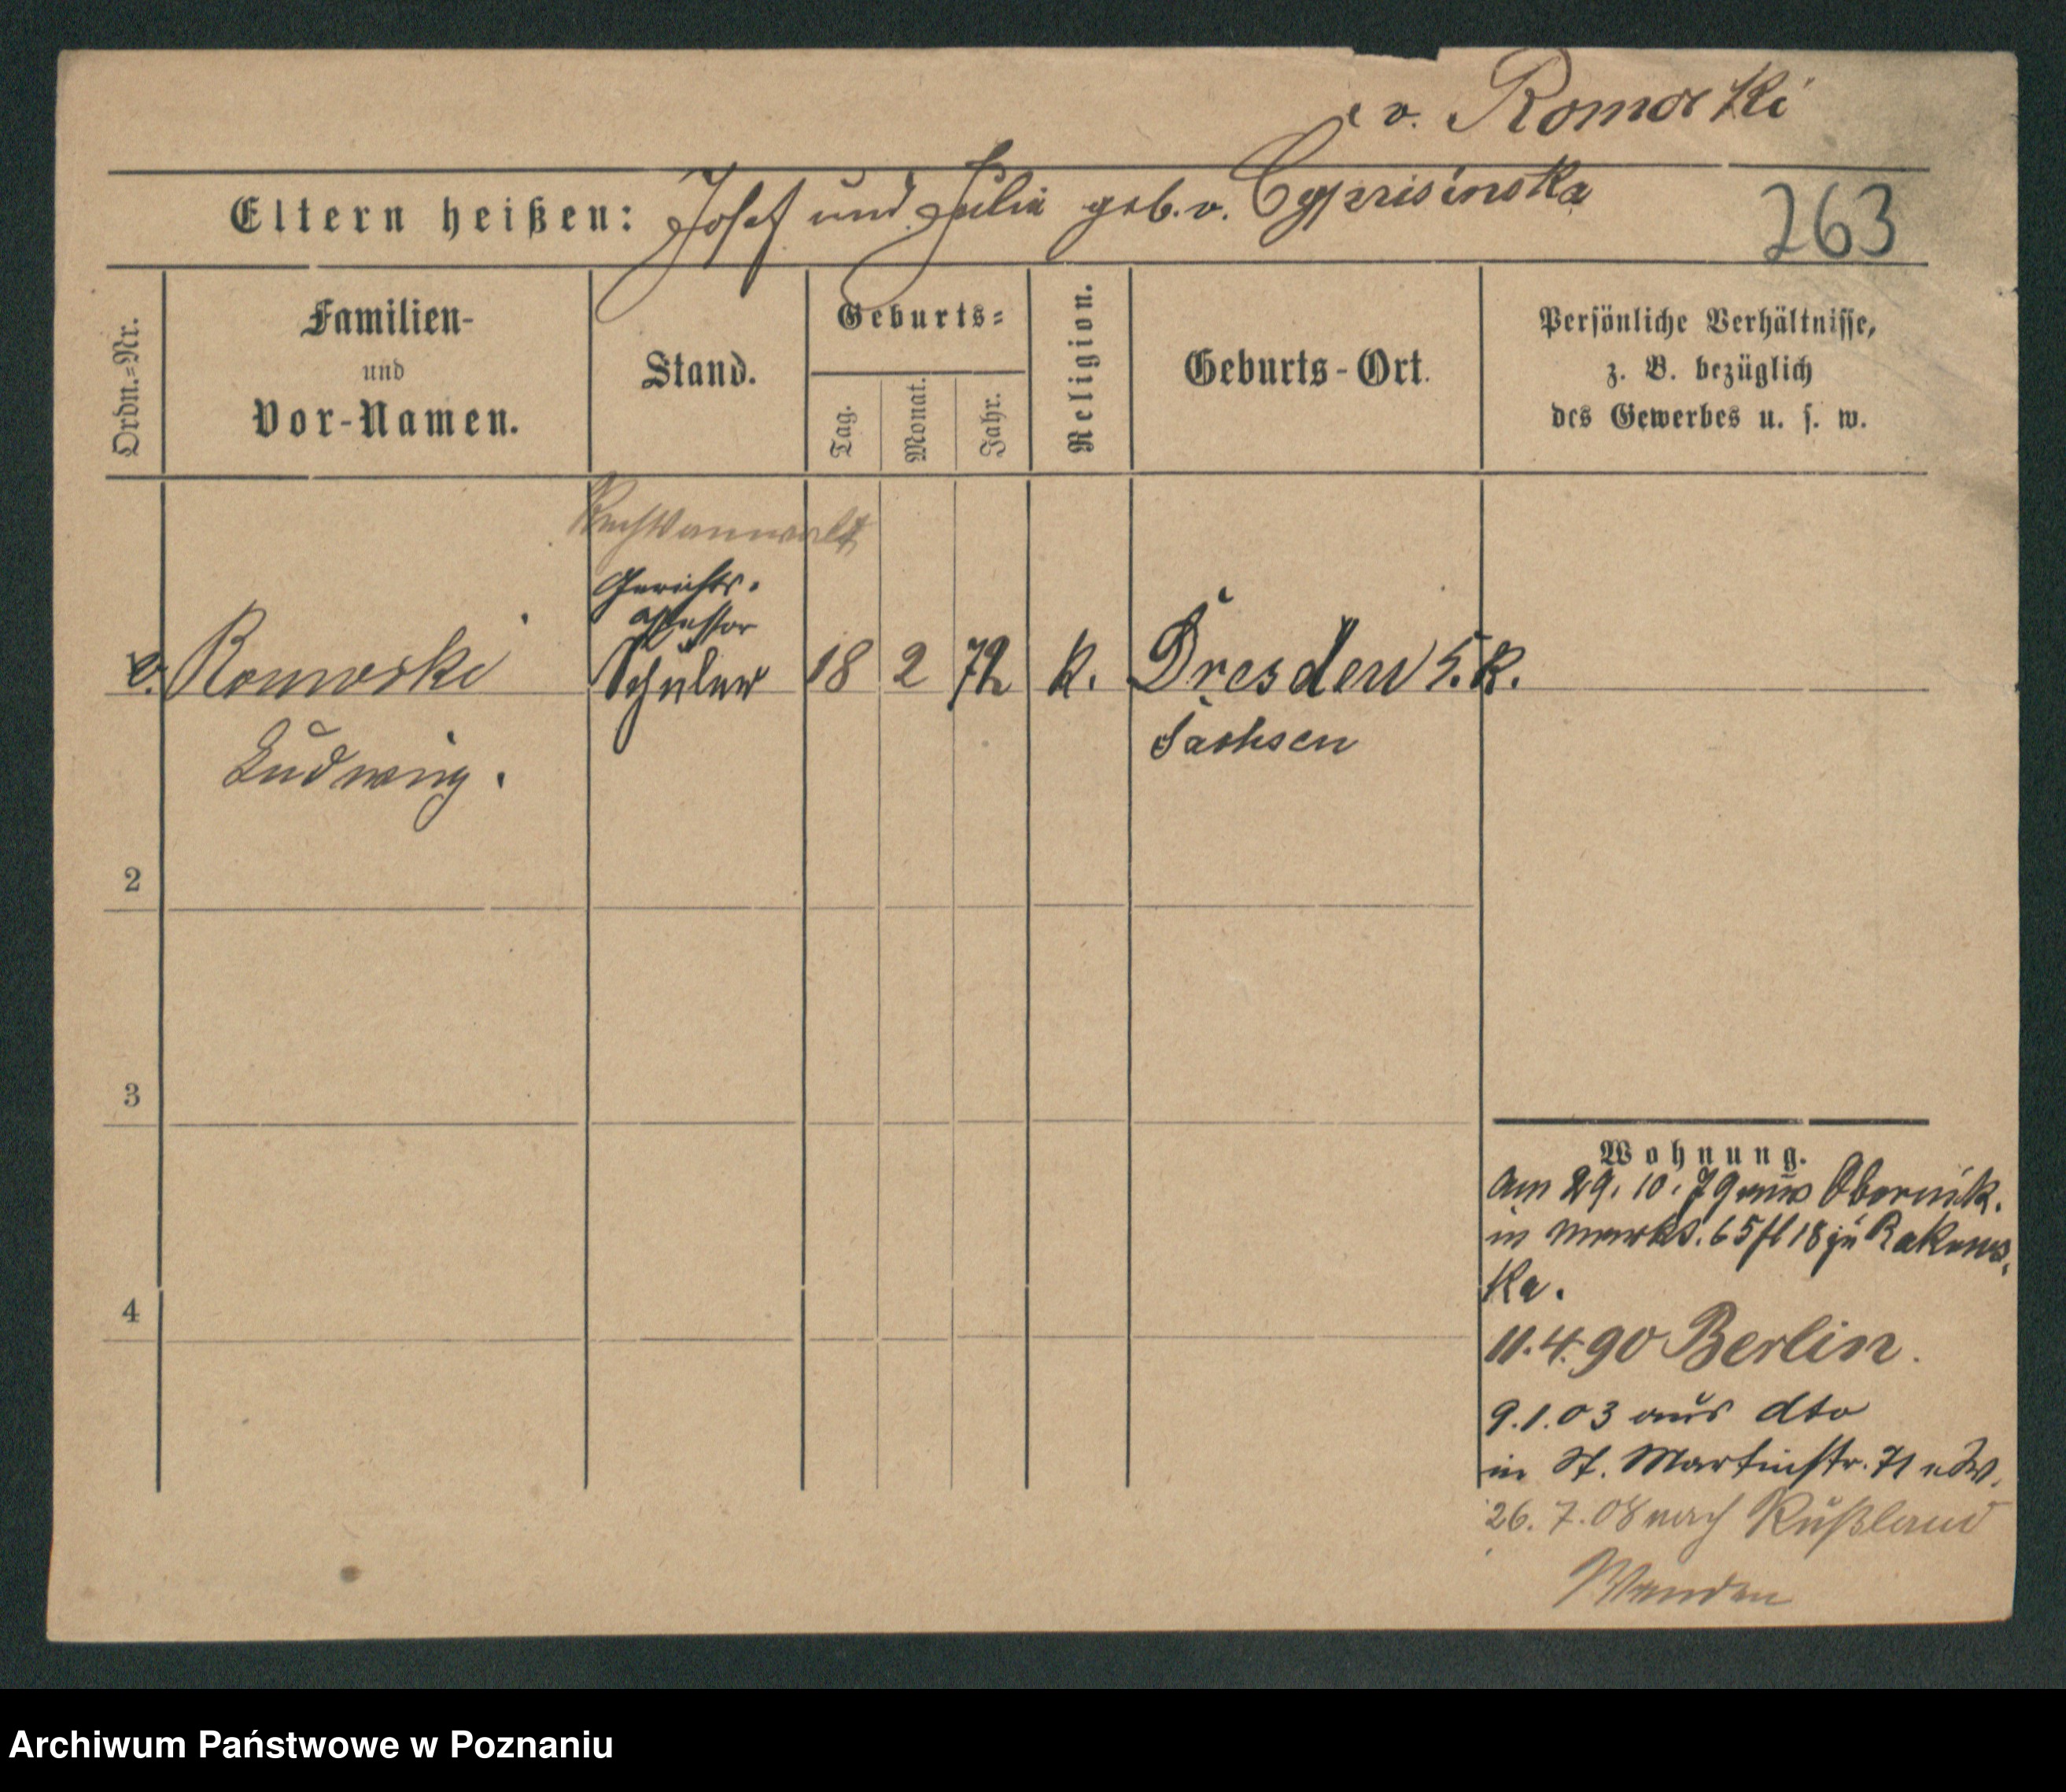 v. Romorski
Eltern heißen: Josef und Julia geb. v. Cyprisinska
263
Ordn.=Nr.
Familien-
und
Vor-Namen.
Stand.
Geburts=
Tag.
Monat.
Jahr.
Religion.
Geburts-Ort.
Persönliche Verhältnisse,
z. B. bezüglich
des Gewerbes u. s. w.
Rechtsanwalt
Gerichts-
assessor
v. Romorski Schüler 18 2 72 k. Dresden K.
Ludwig. Sachsen
2
3
4
Wohnung.
am 29. 10. 79 aus Obornik.
in Markt. 65 18 zu Rakows-
ka.
11.4.90 Berlin.
9.1.03 aus dto
in St. Martinstr. 71
26. 7. 08 nach Rußland
Wenden
Archiwum Państwowe w Poznaniu